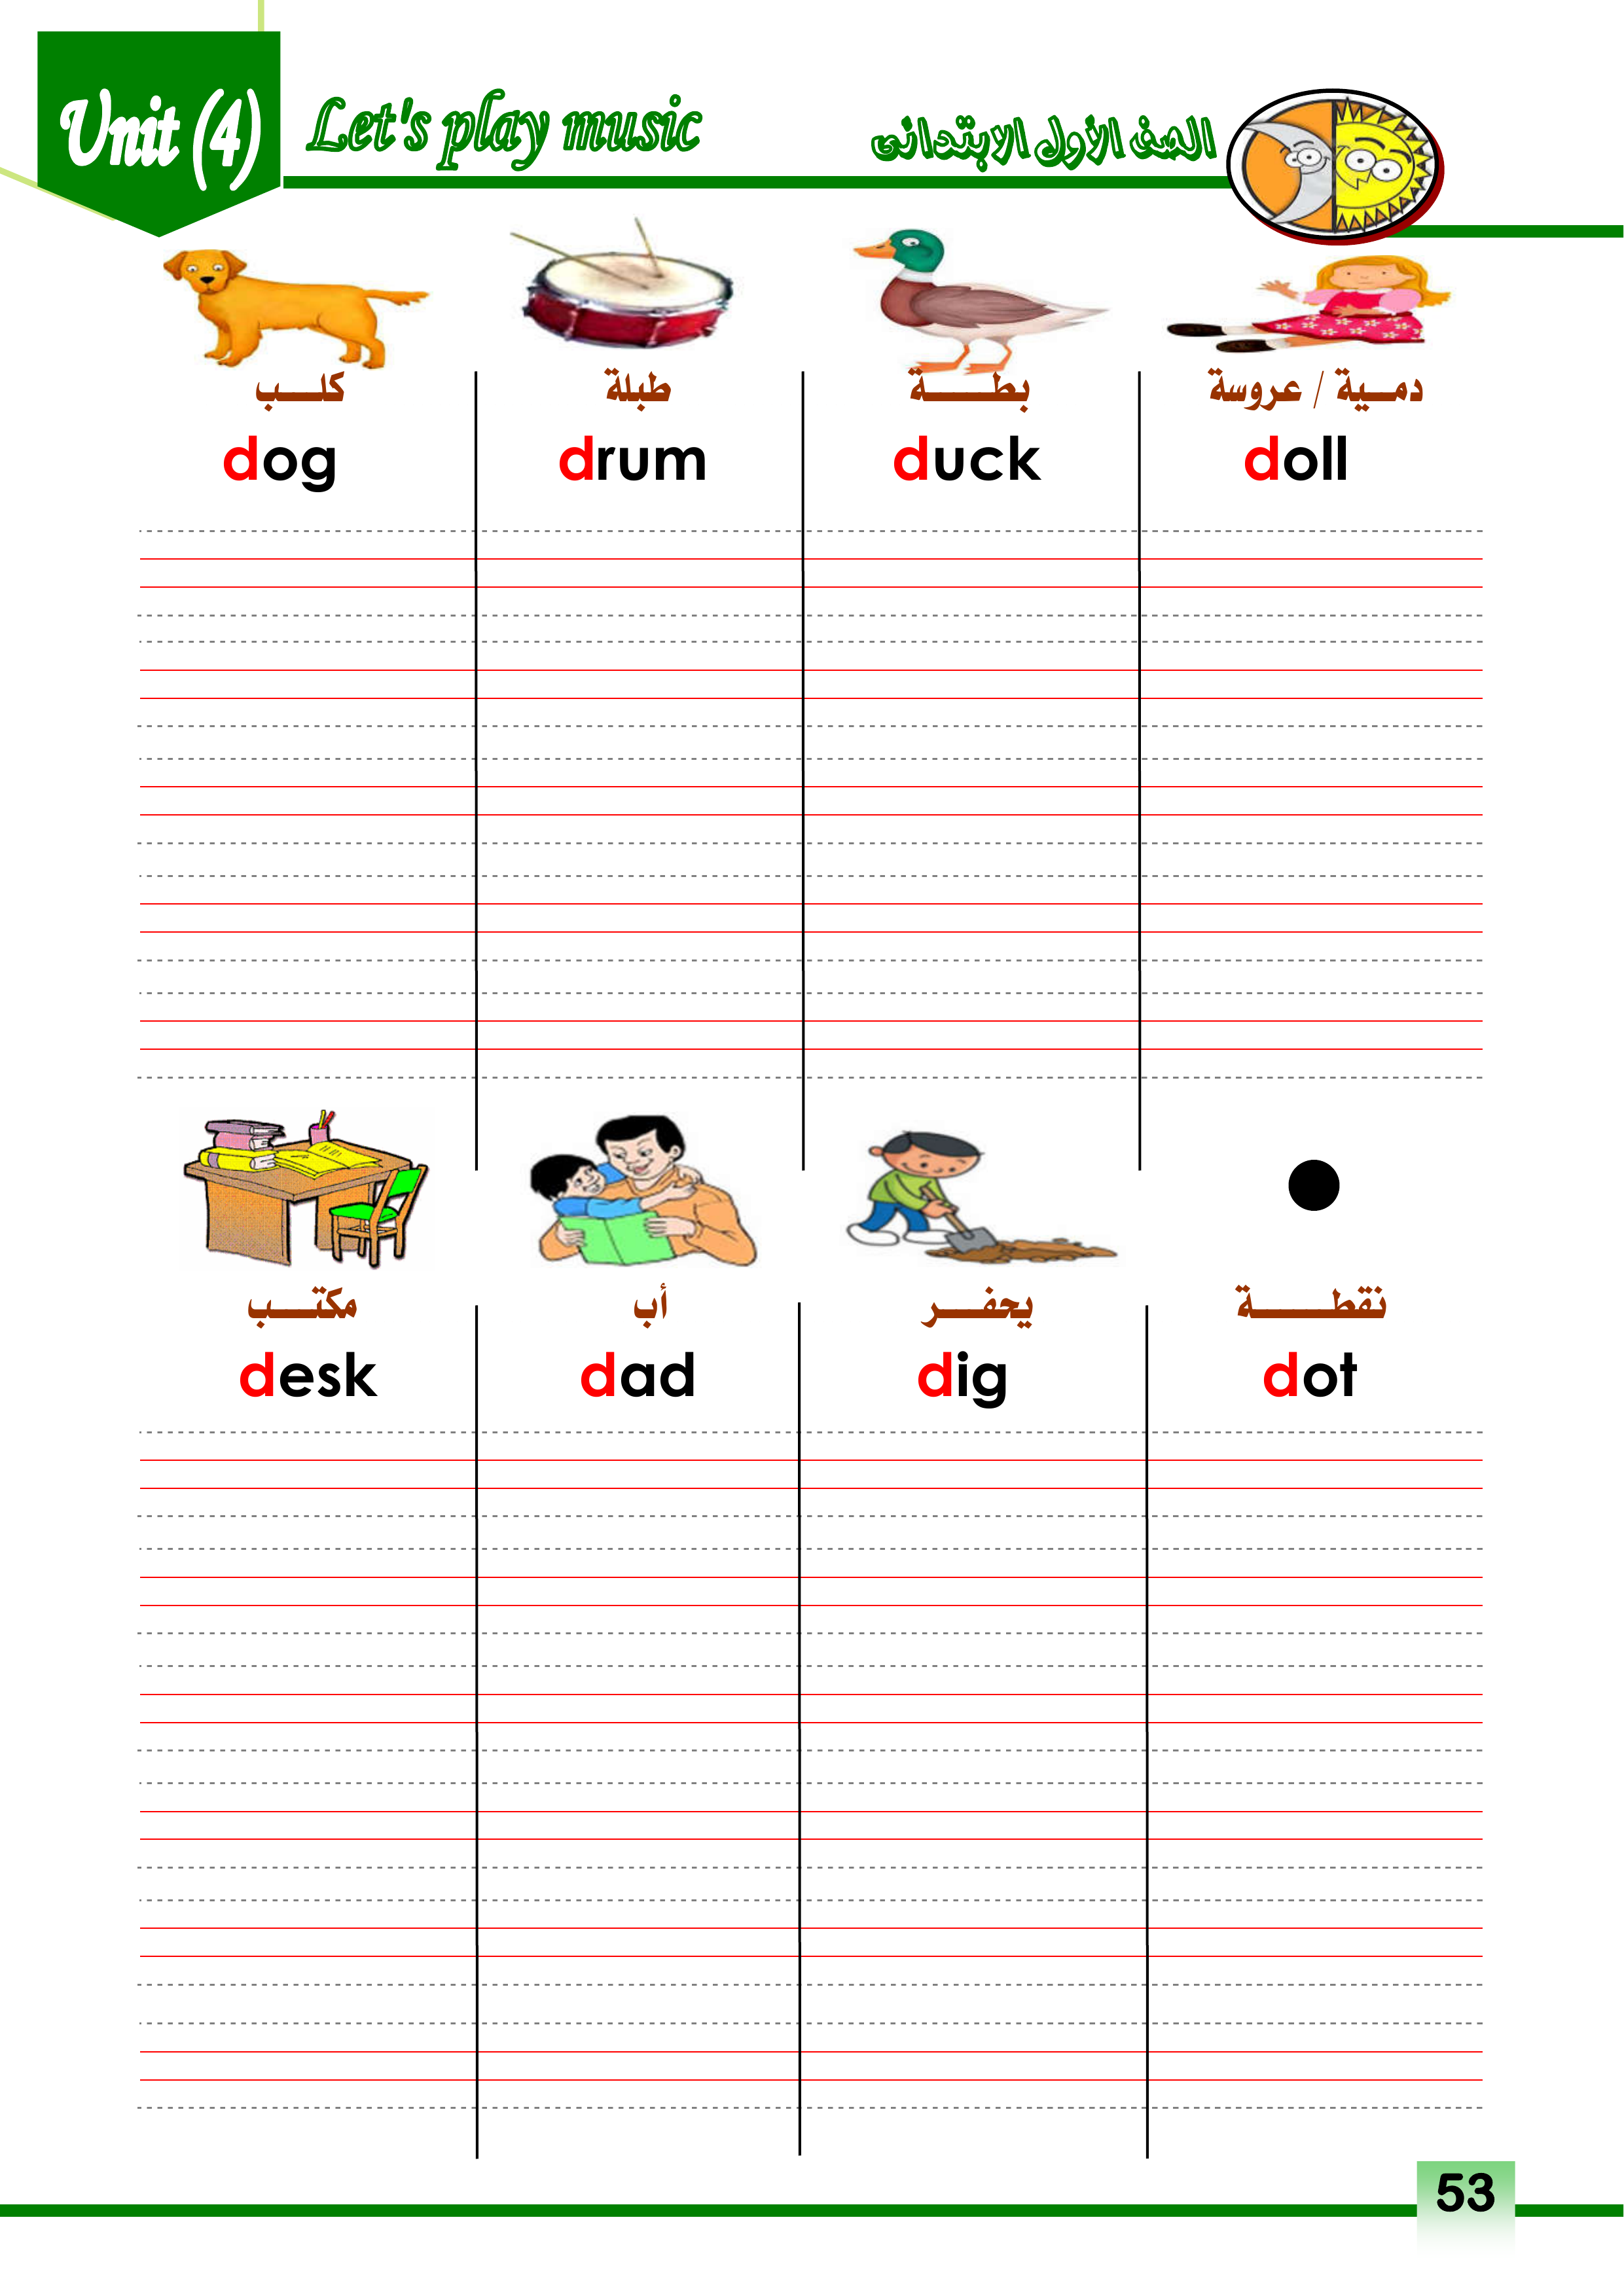 Unit (4) Let's play music الصف الأول الابتدائى
كلب طبلة بطة دمية / عروسة
dog drum duck doll
مكتب أب يحفر نقطة
desk dad dig dot
53